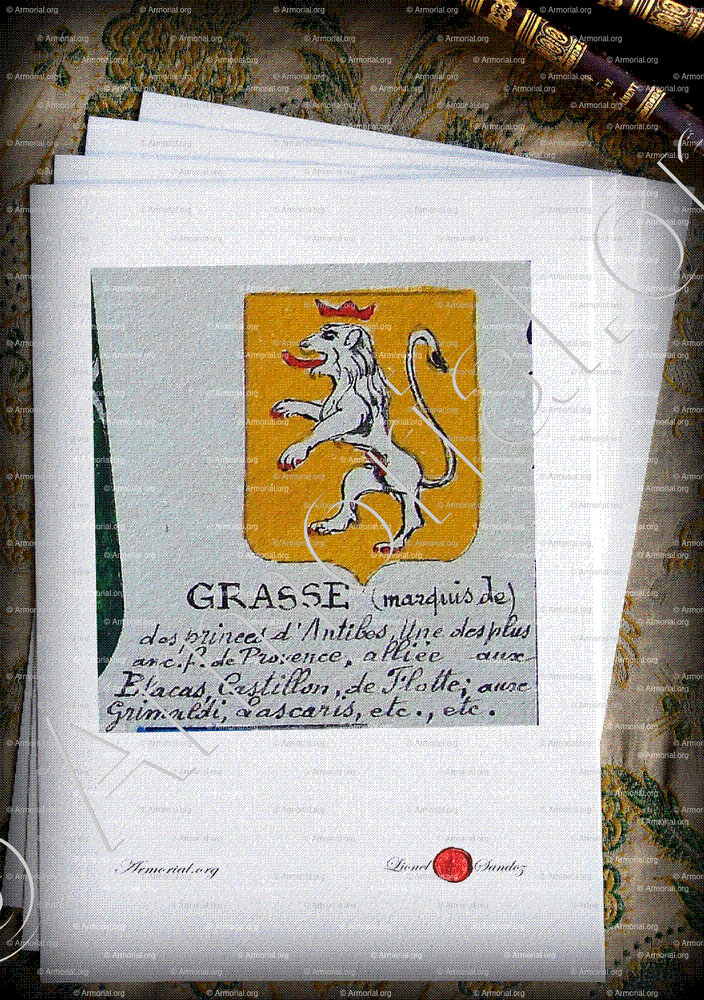 GRASSE (marquis de)
des princes d'Antibes, Une des plus
anc. f. de Provence, alliée aux
Blacas, Castillon, de Flotte; aux
Grimaldi, Lascaris, etc., etc.
Armorial.org
Lionel Sandoz
© Armorial.org